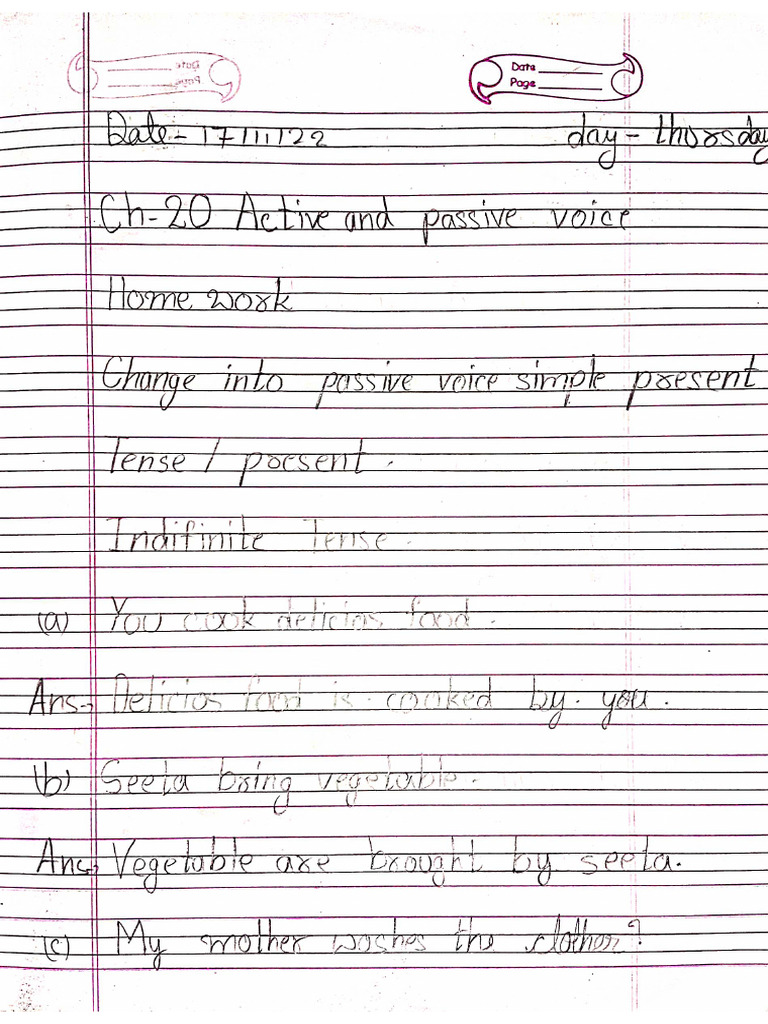 Date
Page
Date - 17/11/22 day - thorsday
Ch-20 Active and passive voice
Home work
Change into passive voice simple present
Tense / present.
Indifinite Tense.
(a) You cook delicias food.
Ans→ Delicios food is cooked by. you.
(b) Seeta bring vegetable.
Ans→ Vegetable are brought by seeta.
(c) My mother washes the clother?